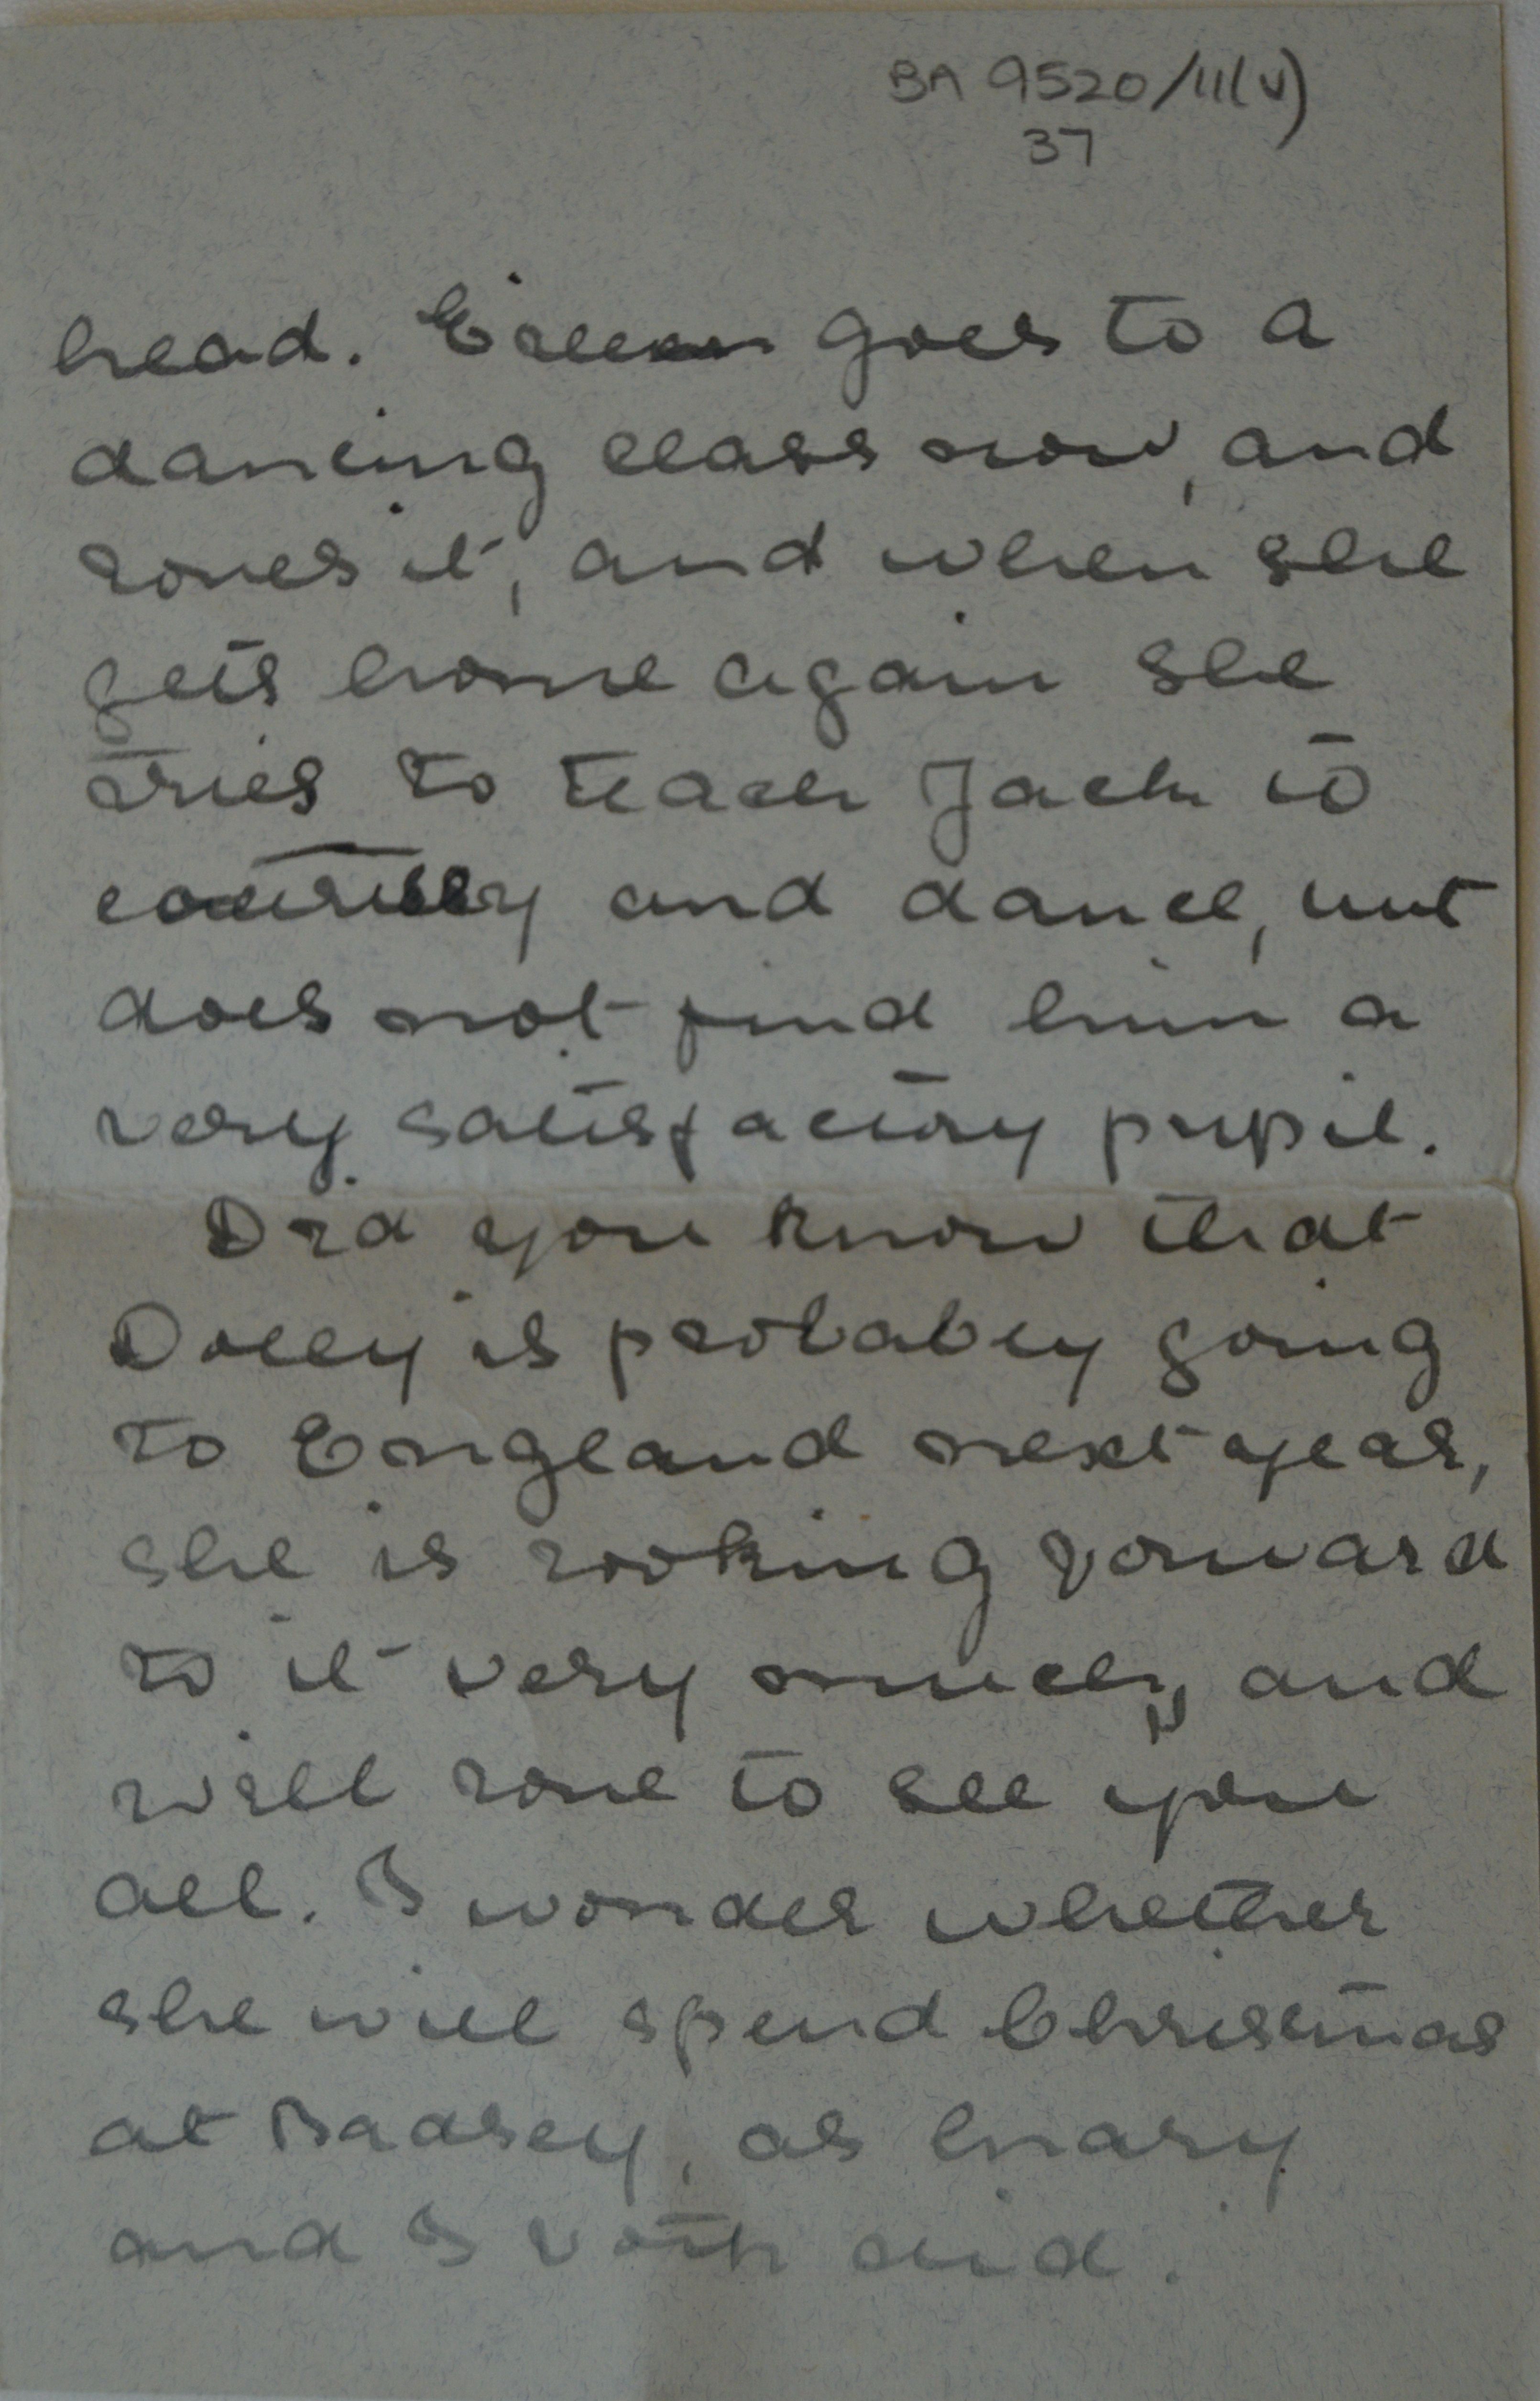 BA 9520/III(V)
37
head. Eileen goes to a
dancing class now, and
loves it, and when she
gets home again she
tries to teach Jack to
and dance, but
does not find him a
very satisfactory pupil.
Did you know that
Dolly is probably going
to England next year,
she is looking forward
to it very much, and
will love to see you
all. I wonder whether
she will spend Christmas
at Badsey, as Mary
and I both did.